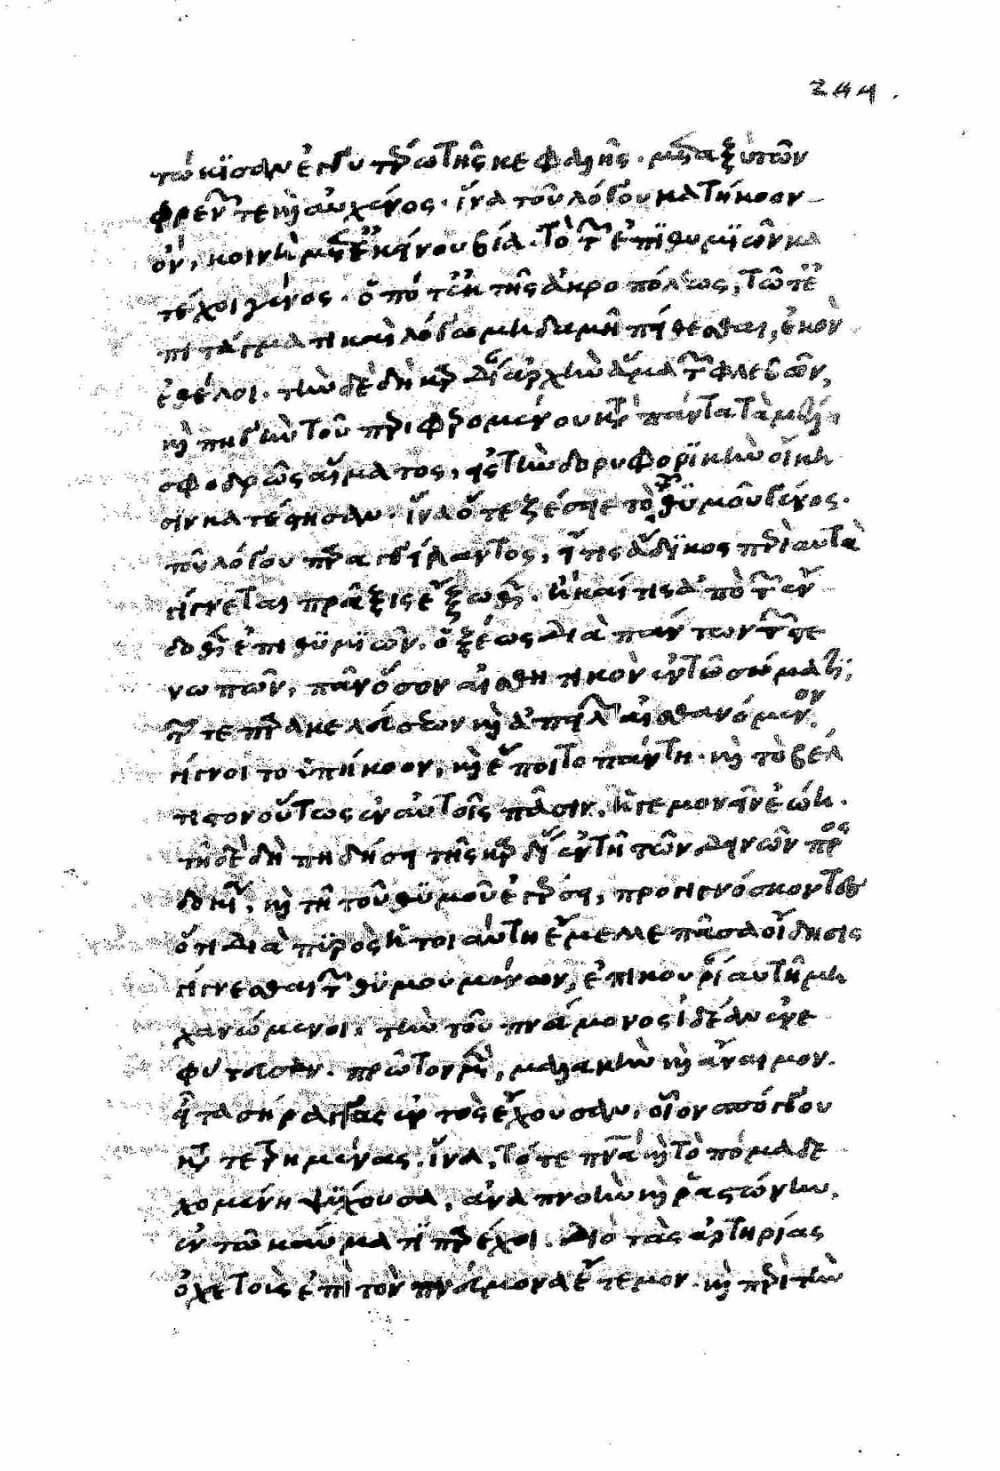 244.
τώκισαν ἐγγυτέρω τῆς κεφαλῆς· μεταξὺ τῶν
φρενῶν τε καὶ αὐχένος· ἵνα τοῦ λόγου κατήκοον
ὂν, κοινῇ μετ' ἐκείνου βίᾳ· τὸ τῶν ἐπιθυμϊῶν κα
τέχοι γένος· ὁπότ' ἐκ τῆς ἀκροπόλεως, τῶ τ' ἐ
πιτάγματι καὶ λόγω μηδαμῆ πείθεσθαι, ἑκὸν
ἐθέλοι· τὴν δὲ δὴ καρδίαν ἀρχὴν ἅμα τῶν φλεβῶν,
καὶ πηγὴν τοῦ περιφερομένου κατὰ πάντα τὰ μέλη
σφοδρῶς αἵματος, εἰς τὴν δορυφορϊκὴν οἴκη
σιν κατέστησαν· ἵνα ὅτε ζέσειε τὸ τοῦ θϋμοῦ γένος·
τοῦ λόγου παραγγείλαντος, ὥς τις ἄδϊκος περὶ αὐτὰ
γίγνεται πρᾶξις ἔξωθεν· ἢ καί τις ἀπὸ τῶν ἔν
δοθεν ἐπιθϋμϊῶν· ὀξέως διὰ πάντων τῶν στε
νωπῶν, πᾶν ὅσον αἰσθητικὸν ἐν τῶ σώματι,
τῶν τε παρακελεύσεων καὶ ἀπειλῶν αἰσθανόμενον,
γίγνοιτο ὑπήκοον, καὶ ἕποιτο πάντη· καὶ τὸ βέλ
τιστον οὕτως ἐν αὐτοῖς πᾶσιν, ἡγεμονεῖν ἐώη·
τῆ δὲ δὴ πηδήσει τῆς καρδίας ἐν τῆ τῶν δεινῶν προσ
δοκίᾳ, καὶ τῆ τοῦ θϋμοῦ ἐγέρσει, προγιγνώσκοντες
ὅτι διὰ πϋρὸς ἡ τοιαύτη ἔμελλε πᾶσα οἴδησις
γίγνεσθαι τῶν θϋμουμένων, ἐπικουρίαν αὐτῆ μη
χανώμενοι, τὴν τοῦ πνεύμονος ἰδέαν ἐνε
φύτευσαν· πρῶτον μὲν, μαλακὴν καὶ ἄναιμον·
εἶτα σήραγγας ἐντὸς ἔχουσαν, οἷον σπόγγου
κατατετρημένας· ἵνα, τό τε πνεῦμα καὶ τὸ πόμα δε
χομένη ψύχουσα, ἀναπνοὴν καὶ ῥαστώνην,
ἐν τῶ καύματϊ παρέχοι· διὸ τὰς ἀρτηρίας
ὀχετοὺς ἐπὶ τὸν πνεύμονα ἔτεμον· καὶ περὶ τὴν